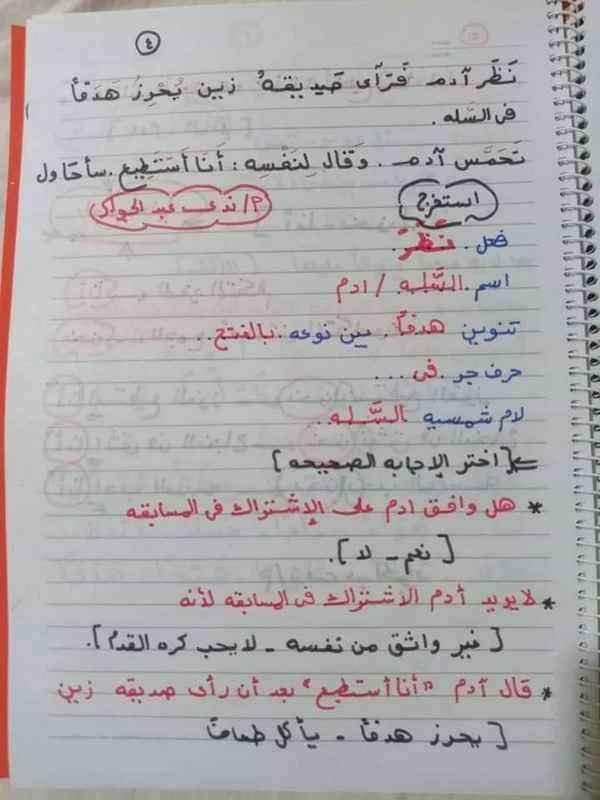 ٤
نَظَر آدم فَرَآى صَدِيقهُ زين يُحْرِزُ هَدَفًا
فى السَّله .
تَحَمَّس آدم . وَقَال لِنَفْسِه : أَنَا أَسْتَطِيع . سأحَاول
استخرج
م/ ندى عبد الجواد
فعل . نظَرَ .
اسم . السَّله . / ادم
تنوين هدفًا . بين نوعه . بالفتح . .
حرف جر . فى . . . .
لام شمسيه السَّله . .
[ اختر الإجابه الصحيحه ]
* هل وافق ادم على الإشتراك فى المسابقه
[ نعم - لا ] .
* لا يريد أدم الاشتراك فى المسابقه لأنه
[ غير واثق من نفسه - لا يحب كره القدم ] .
* قال آدم "أنا أستطيع" بعد أن رأى صديقه زين
[ يحرز هدفًا - يأكل طعامًا